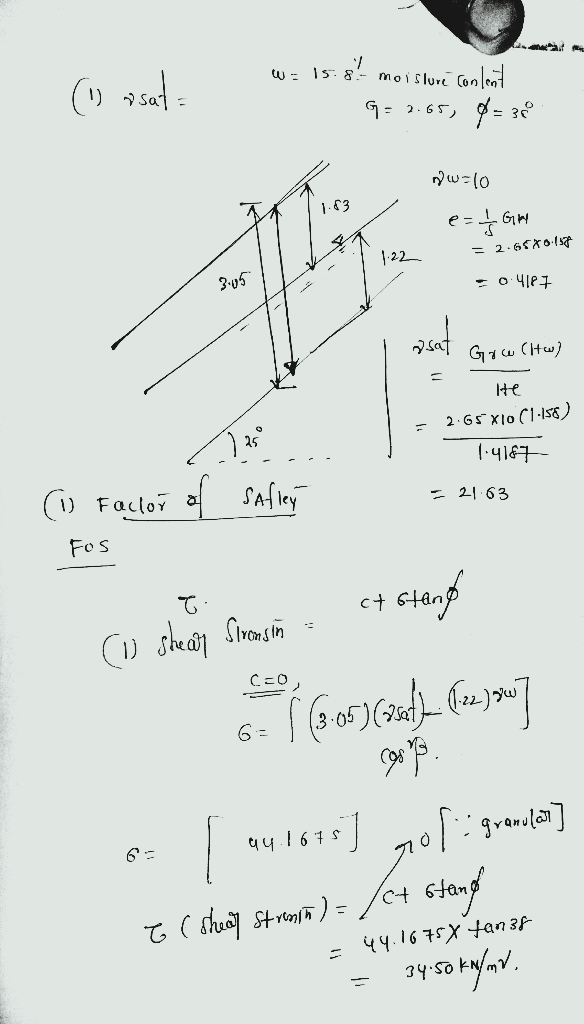 (1) γsat =
w = 15.8% moisture content
G = 2.65, φ = 38°
γw=10
e = 1/S Gw
= 2.65x0.158
= 0.4187
1.53
1.22
3.05
25°
γsat = Gγw(1+w) / 1+e
= 2.65x10(1.158) / 1.4187
= 21.63
(1) Factor of SAfley
FOS
τ.
(1) shear Strensth = c+ σtanφ
c=0,
σ = [(3.05)(γsat) - (1.22)γw]
cos²β.
σ = [44.1675]
0 [∵ granular]
τ (shear strensth) = c+ σtanφ
= 44.1675x tan38
= 34.50 kN/m².